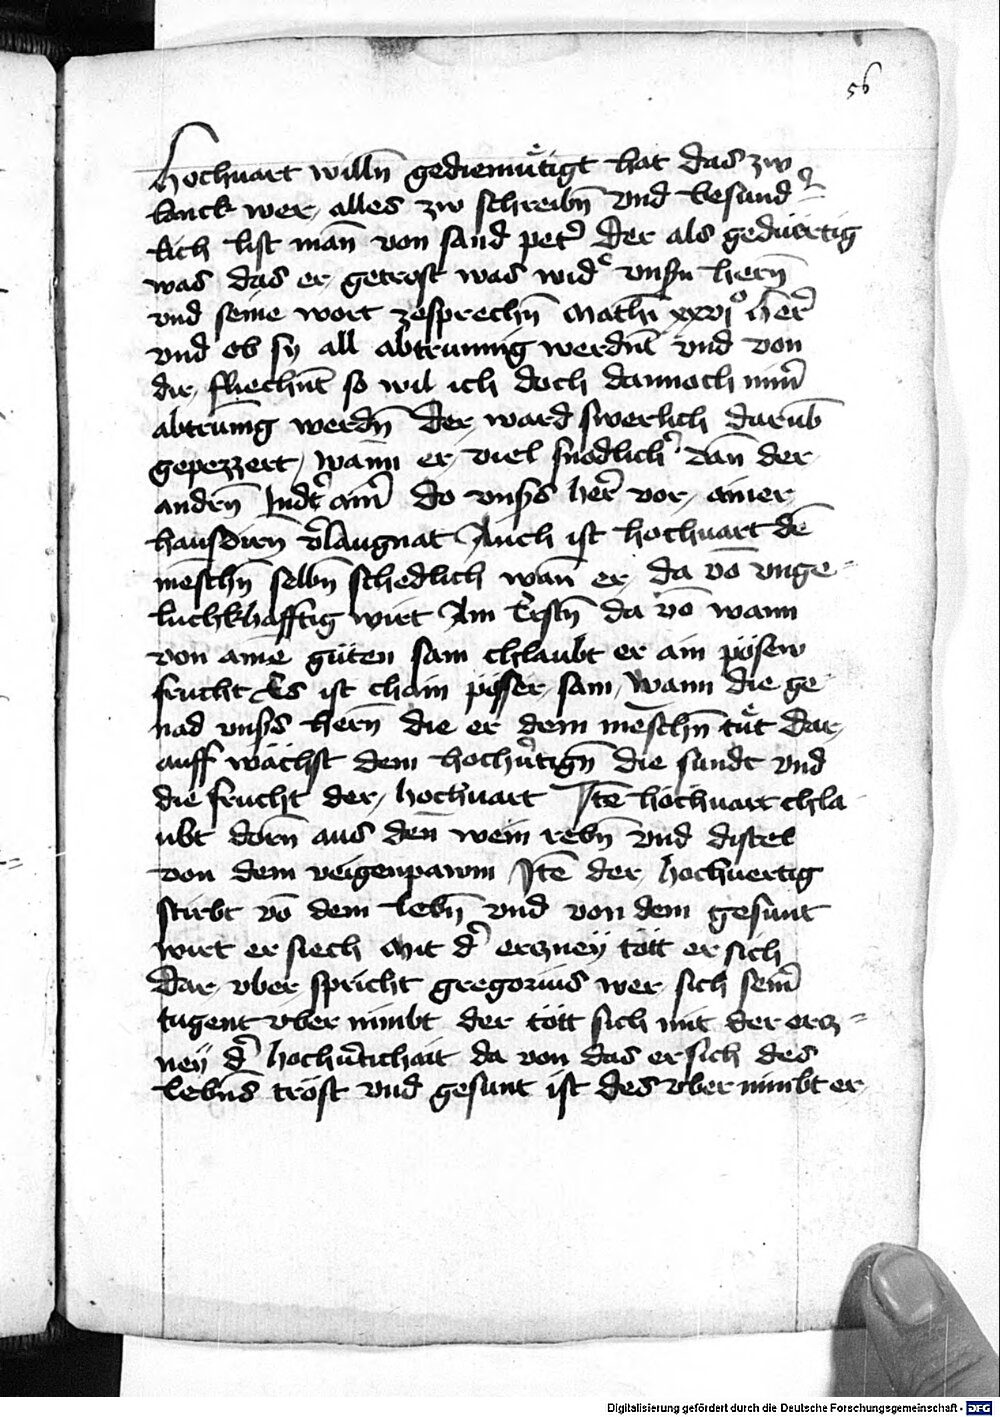 56
Hochuart willn̄ gediemuͤtigt hat das zw
lanck wer alles zw schreibn̄ vnd besund
lich list man̄ von sand pet̓ Der als geduͤrtig
was das er getrost was wid̓ vnsn̄ hern̄
vnd seine wort zesprechn̄ Mathi xxvi° Her̓
vnd ob sy all abtrunnig werdnt̄ vnd von
dir fliechnt̄ so wil ich doch dannoch nim̓
abtrūnig werdn̄ Der ward swerlich darub̄
gepezzert wann er viel snodlich̓ dan̄ der
andrn̄ Judt̓ ain̓ do vnsˢs her̓ vor ainer
hausdirn̄ v̓laugnat Auch ist hochuart dē
mēschn̄ selbn̄ schedlich wan̄ er da vō vnge⸗
luchkhafftig wirt Am Erstn̄ da vō wann
von amē guten sam chlaubt er ain pösew
frucht Es ist chain pösser sam Wann die ge
nad vnsˢs hern̄ die er dem mēschn̄ tuͤt dar
auff wächst dem hochu̓tign̄ die sundt vnd
die frucht der hochuart Itē hochuart chla
ubt dorn̄ aus den̄ wein rebn̄ vnd distel
von dem veigenpawm Itē der hochuertig
stirbt vō dem lebn̄ vnd von dem gesunt
wirt er siech Mit d̓ ercznëy tött er sich
Dar vber spricht gregorius wer sich sein̓
tugent vber nimbt der tött sich mit der ercz⸗
nëy d̓ hochu̓tichait da von das er sich des
lebns̄ tröst vnd gesunt ist des vber nimbt er
Digitalisierung gefördert durch die Deutsche Forschungsgemeinschaft - DFG